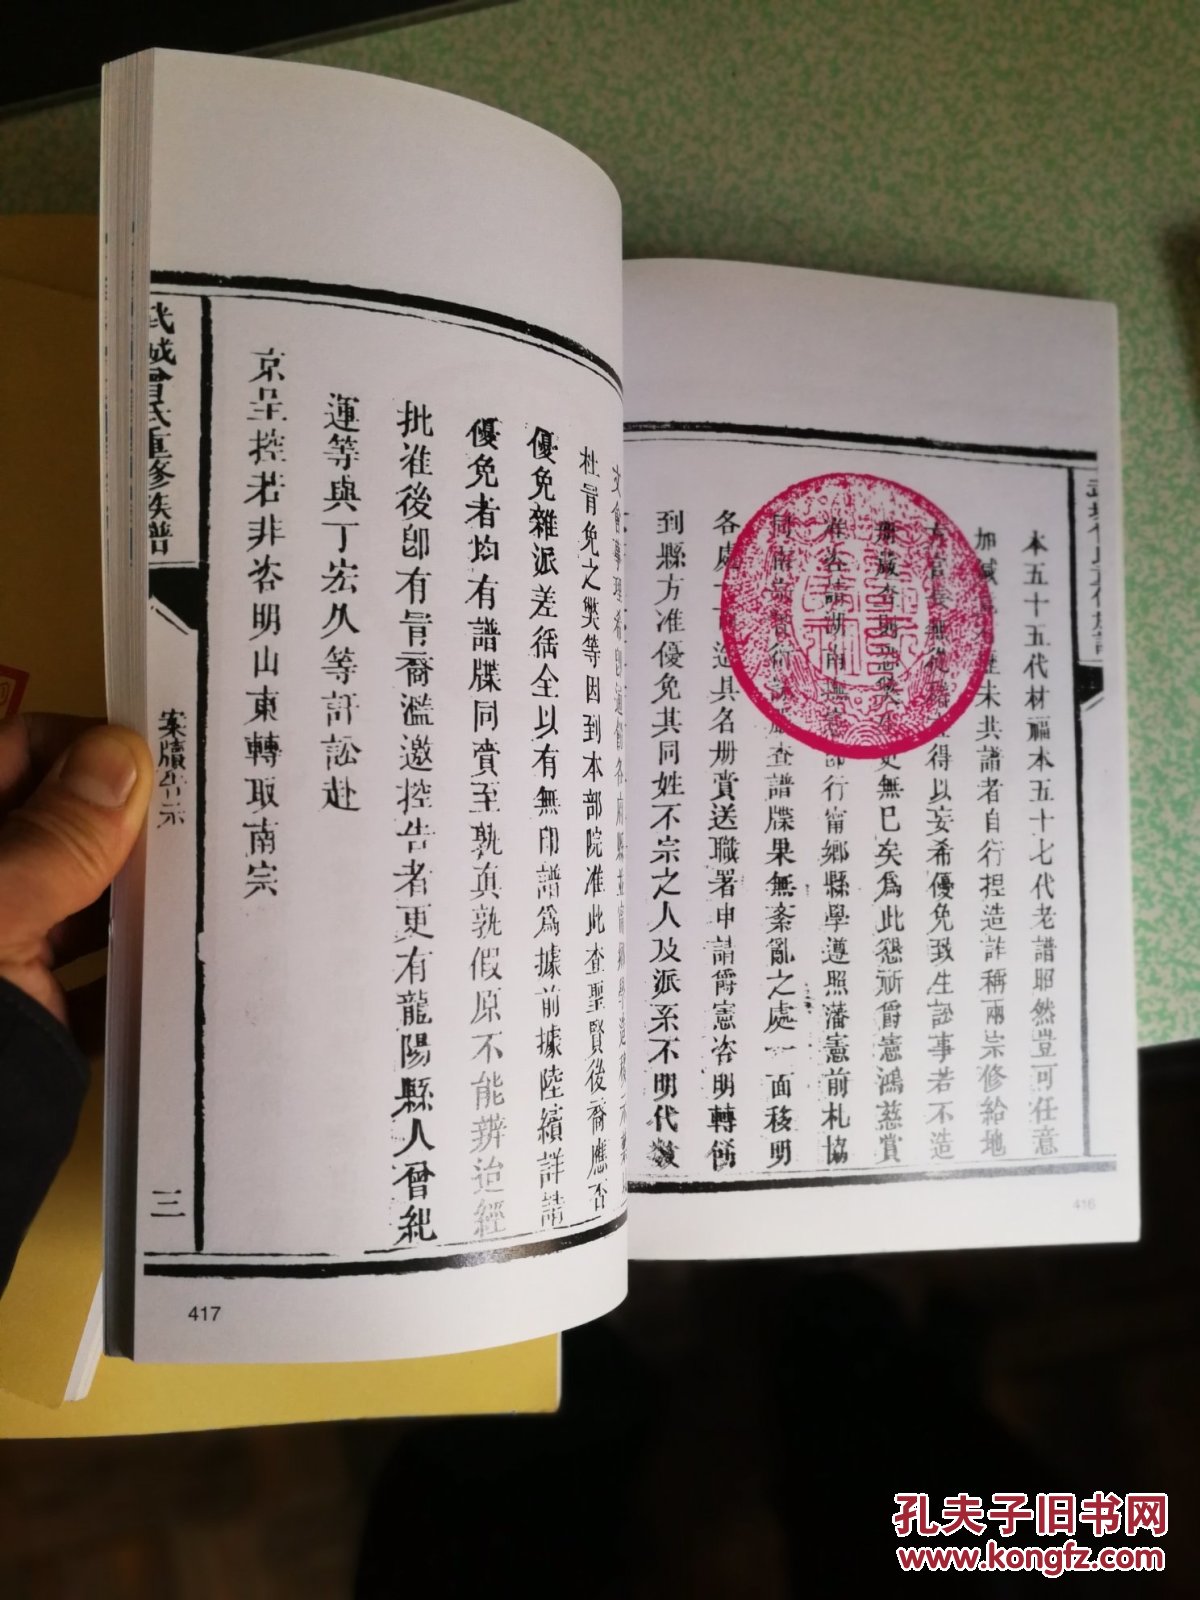 本五十五代材福本五十七代老譜昭然豈可任意
加減
未共譜者自行捏造詐稱兩宗修給地
得以妄希優免致生訟事若不造
更無已矣爲此懇祈爵憲鴻慈賞
准咨請湖南撫憲即行甯鄉縣學遵照藩憲前札協
同南宗
查譜牒果無紊亂之處一面移明
各處
造具名册賫送職署申請爵憲咨明轉飭
到縣方准優免其同姓不宗之人及派系不明代數
416
杜冐免之獘等因到本部院准此查聖賢後裔應否
優免雜派差徭全以有無印譜爲據前據陸續詳請
優免者均有譜牒同賫至孰真孰假原不能辨迨經
批准後卽有冐裔濫邀控告者更有龍陽縣人曾紀
運等與丁宏久等訐訟赴
京呈控若非咨明山東轉取南宗
武城曾氏重修族譜
案牘告示
三
417
孔夫子旧书网
www.kongfz.com